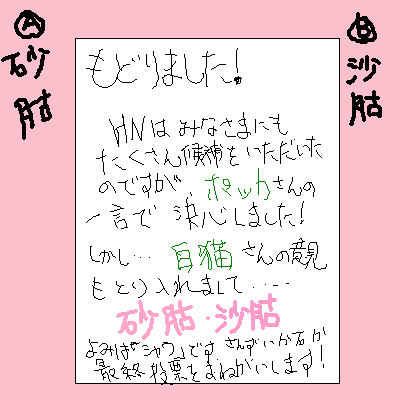 Ⓐ砂肪
Ⓑ沙肪
もどりました!
HNは みなさまにも
たくさん候補をいただいた
のですが、ポッカさんの
一言で 決心しました!
しかし… 白猫 さんの意見
もとり入れまして・・--
砂肪・沙肪
よみは"シャコ"です さんずいか石か
最終投票をおねがいします!